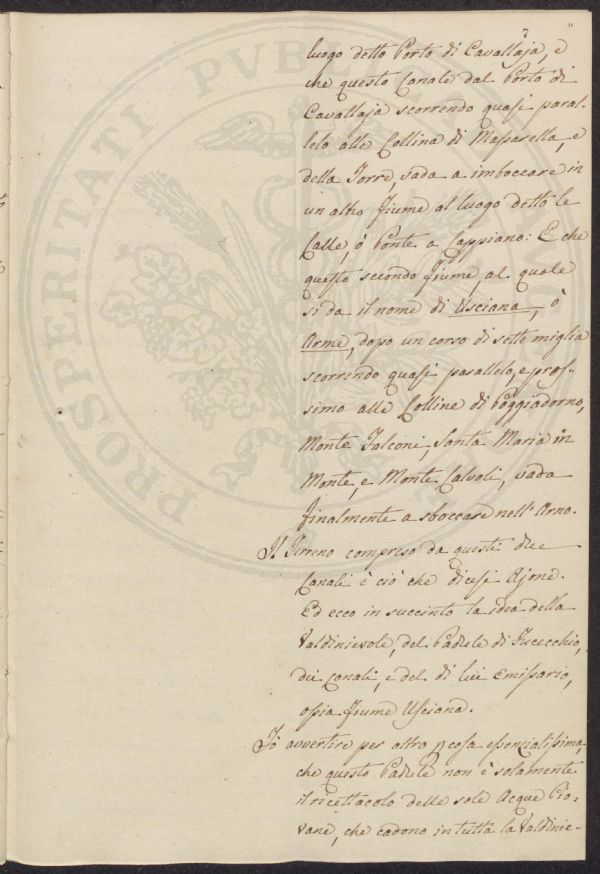 7
luogo detto Porto di Cavallaja, e
che questo Canale dal Porto di
Cavallaja scorrendo quasi paral-
lelo alle Collina di Massarella, e
della Torre, vada a imboccare in
un altro fiume al luogo detto le
Calle, ò Ponte a Cappiano: E che
questo secondo fiume, al quale
si da il nome di Usciana, ò
Arme, dopo un corso di sette miglia
scorrendo quasi parallelo, e pros-
simo alle Colline di Poggiadorno,
Monte Falconi, Santa Maria in
Monte, e Monte Calvoli, vada
finalmente a sboccare nell'Arno.
Il Terreno compreso da questi due
Canali è ciò che dicesi Ajme.
Ed ecco in succinto la idea della
Valdinievole, del Padule di Fucecchio,
dei Canali, e del di lui Emissario,
ossia fiume Usciana.
Fò avvertire per altro cosa essenzialissima,
che questo Padule non è solamente
il ricettacolo delle sole Acque Pio-
vane, che cadono in tutta la Valdinie-
PROSPERITATI PVBL